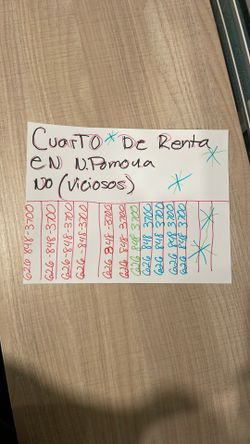 CuarTO De Renta
eN N. Pomona
No (Viciosos)
626 848-3700
626-848-3700
626-848-3700
626-848-3700
626 848-3700
626 848-3700
626 848 3700
626 848 3700
626 848 3700
626 848 3700
626 848 3700